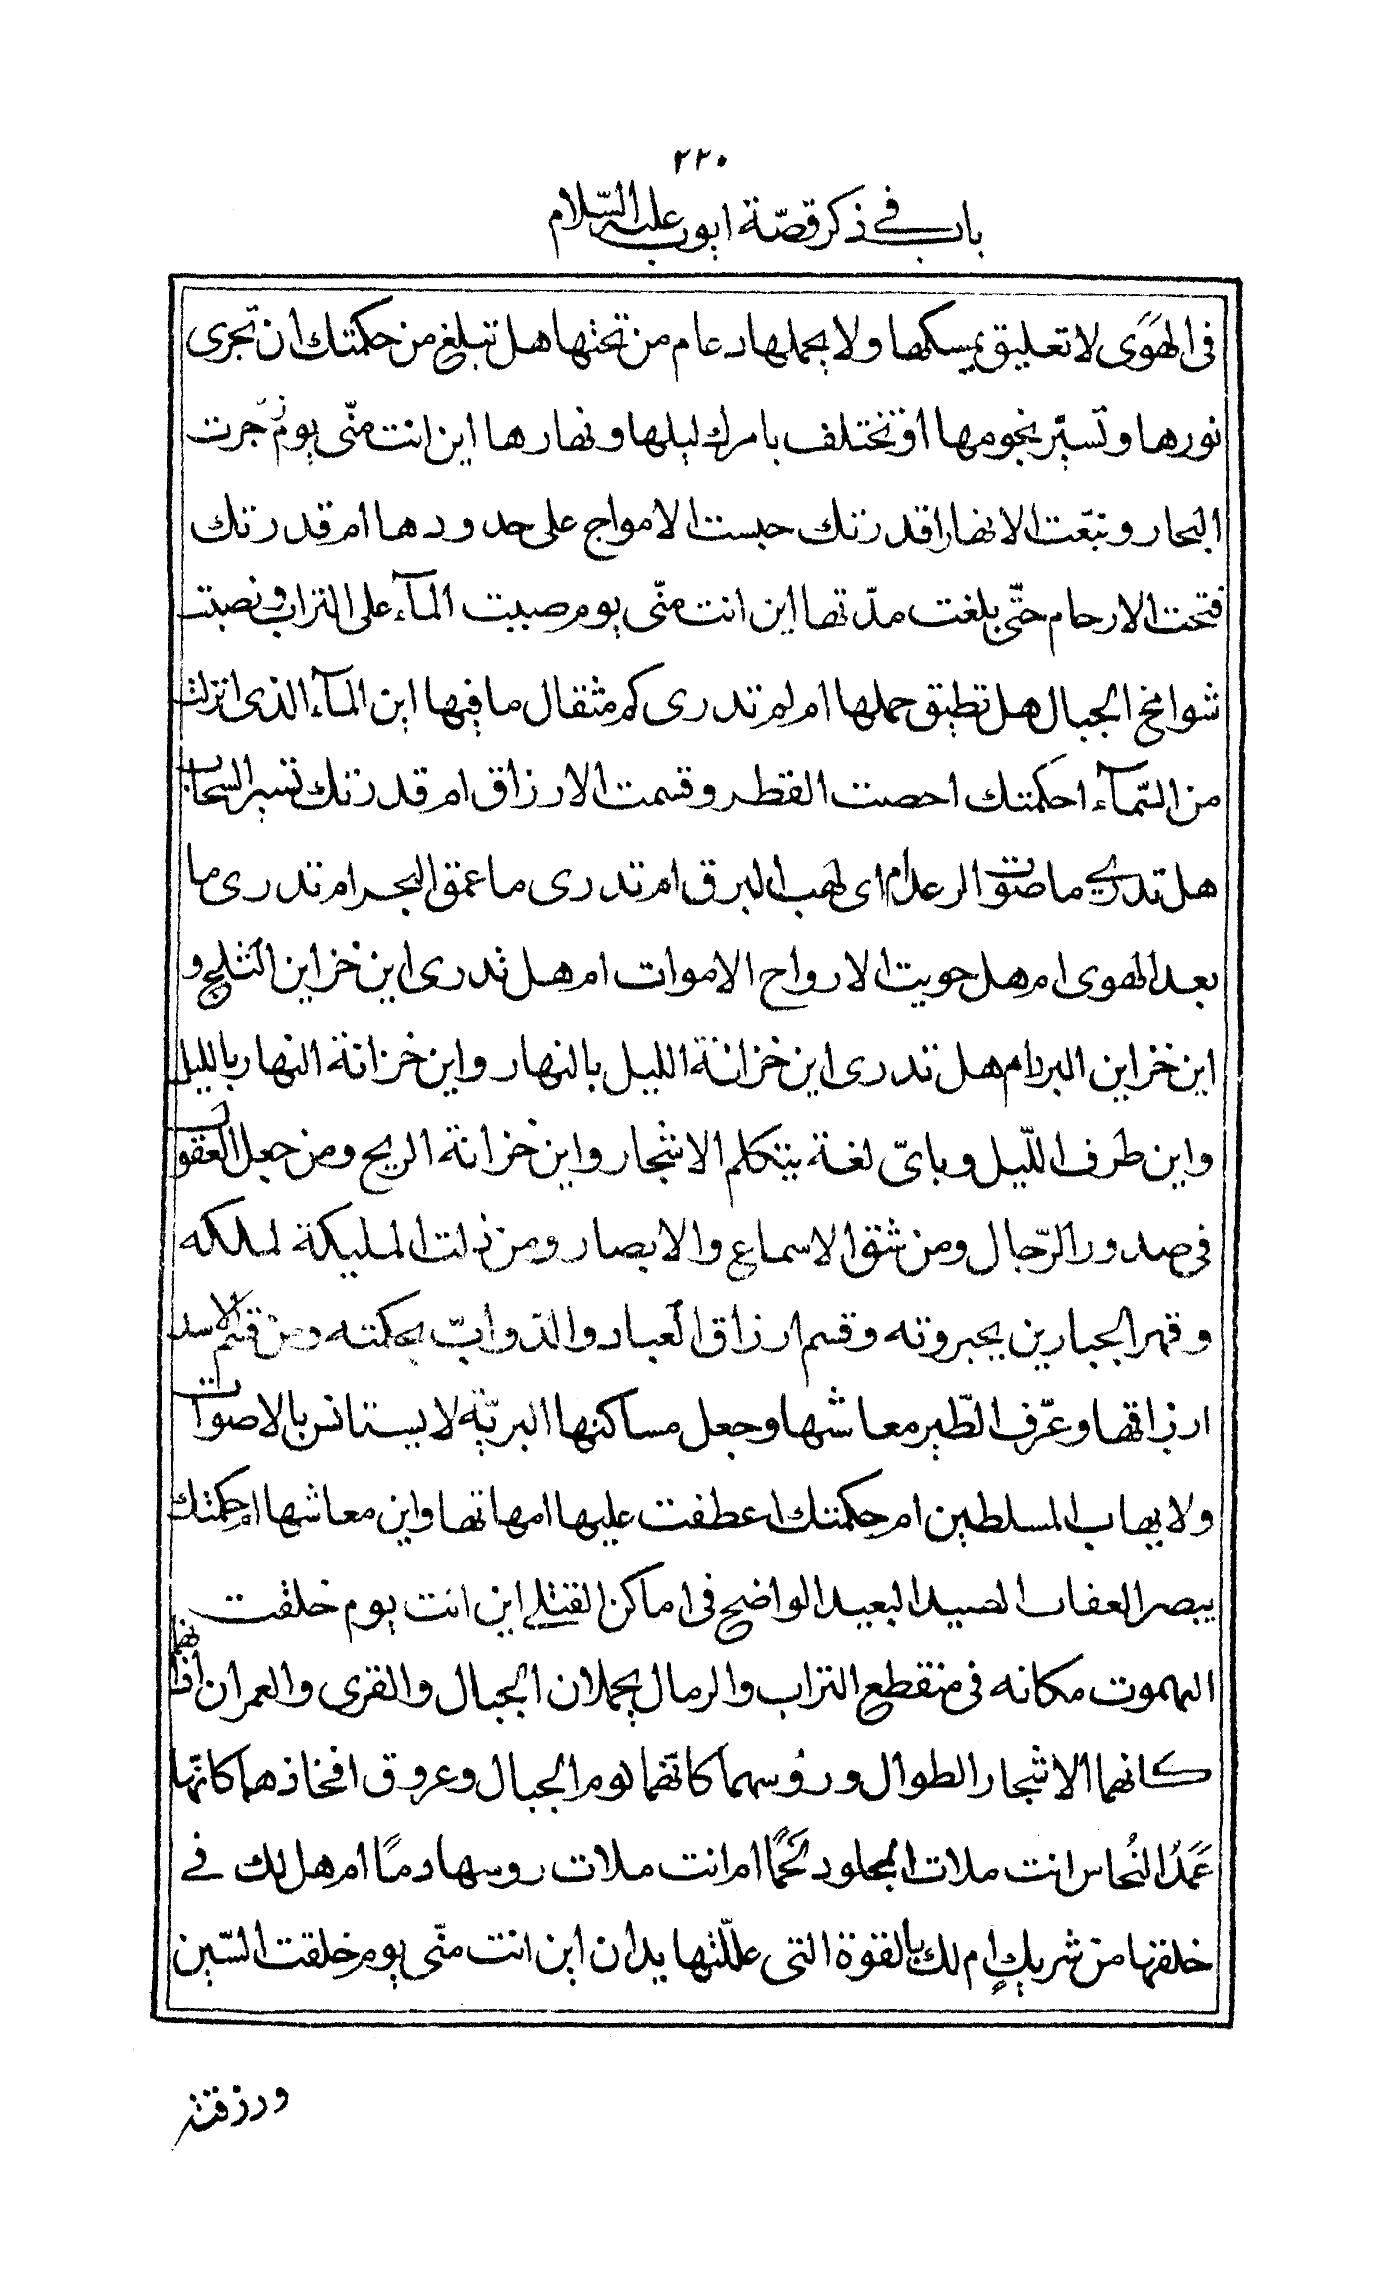 ٢٢٠
باب في ذكر قصّة ايوب عليه السّلام
فى الهَوَى لا تعليق يمسكها ولا يحملها دعام من تحتها هل تبلغ من حكمتك ان تجرى
نورها وتسيّر نجومها او تختلف بامرك ليلها ونهارها اين انت منّى يوم سجرت
البحار ونبّعت الانهار اقدرتك حبست الامواج على حدودها ام قدرتك
فتحت الارحام حتّى بلغت مدّتها اين انت منّى يوم صببت المآء على التراب ونصبت
شوامخ الجبال هل تطيق حملها ام لم تدرى كم مثقال ما فيها اين المآء الذى انزلت
من السّمآء احكمتك احصت القطر وقسمت الارزاق ام قدرتك تسير السحاب
هل تدرى ما صوت الرعد ام اى لهب البرق ام تدرى ما عمق البحر ام تدرى ما
بعد الهوى ام هل حويت الارواح الاموات ام هل تدرى اين خزاين الثلج و
اين خزاين البرد ام هل تدرى اين خزانة الليل بالنهار واين خزانة النهار بالليل
واين طرف اللّيل وباىّ لغة يتكلم الاشجار واين خزانة الريح ومن جعل العقول
فى صدور الرّجال ومن شق الاسماع والابصار ومن ذلت المليكة لملكه
وقهر الجبارين بجبروته وقسم ارزاق العباد والدّوابّ بحكمته ومن قسم الاسد
ارزاقها وعرّف الطّير معاشها وجعل مساكنها البريّه لا يستانس بالاصوات
ولا يهاب المسلطين ام حكمتك اعطفت عليها امهاتها واين معاشها ام حكمتك
يبصر العقاب الصيد البعيد الواضح فى اماكن القتلى اين انت يوم خلقت
البهموت مكانه فى منقطع التراب والرمال يحملان الجبال والقرى والعمران اذانهما
كانهما الاشجار الطوال ورؤسهما كانّهما لوم الجبال وعروق افخاذهما كانّها
عَمَدُ النُحاس انت ملات الجلود لَحمًا ام انت ملات روسها دمًا ام هل لك في
خلقها من شريكٍ ام لك بالقوة التى عللتها يدان اين انت منّى يوم خلقت السّين
ورزقته